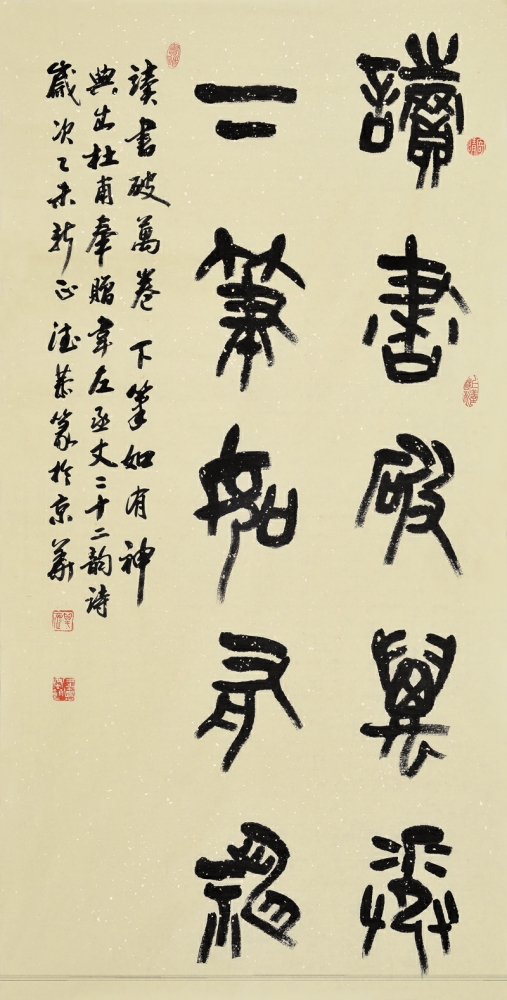 讀書破萬卷
下筆如有神
读書破萬卷 下筆如有神
典出杜甫奉贈韋左丞丈二十二韵诗
歲次乙未新正 恭篆於京華